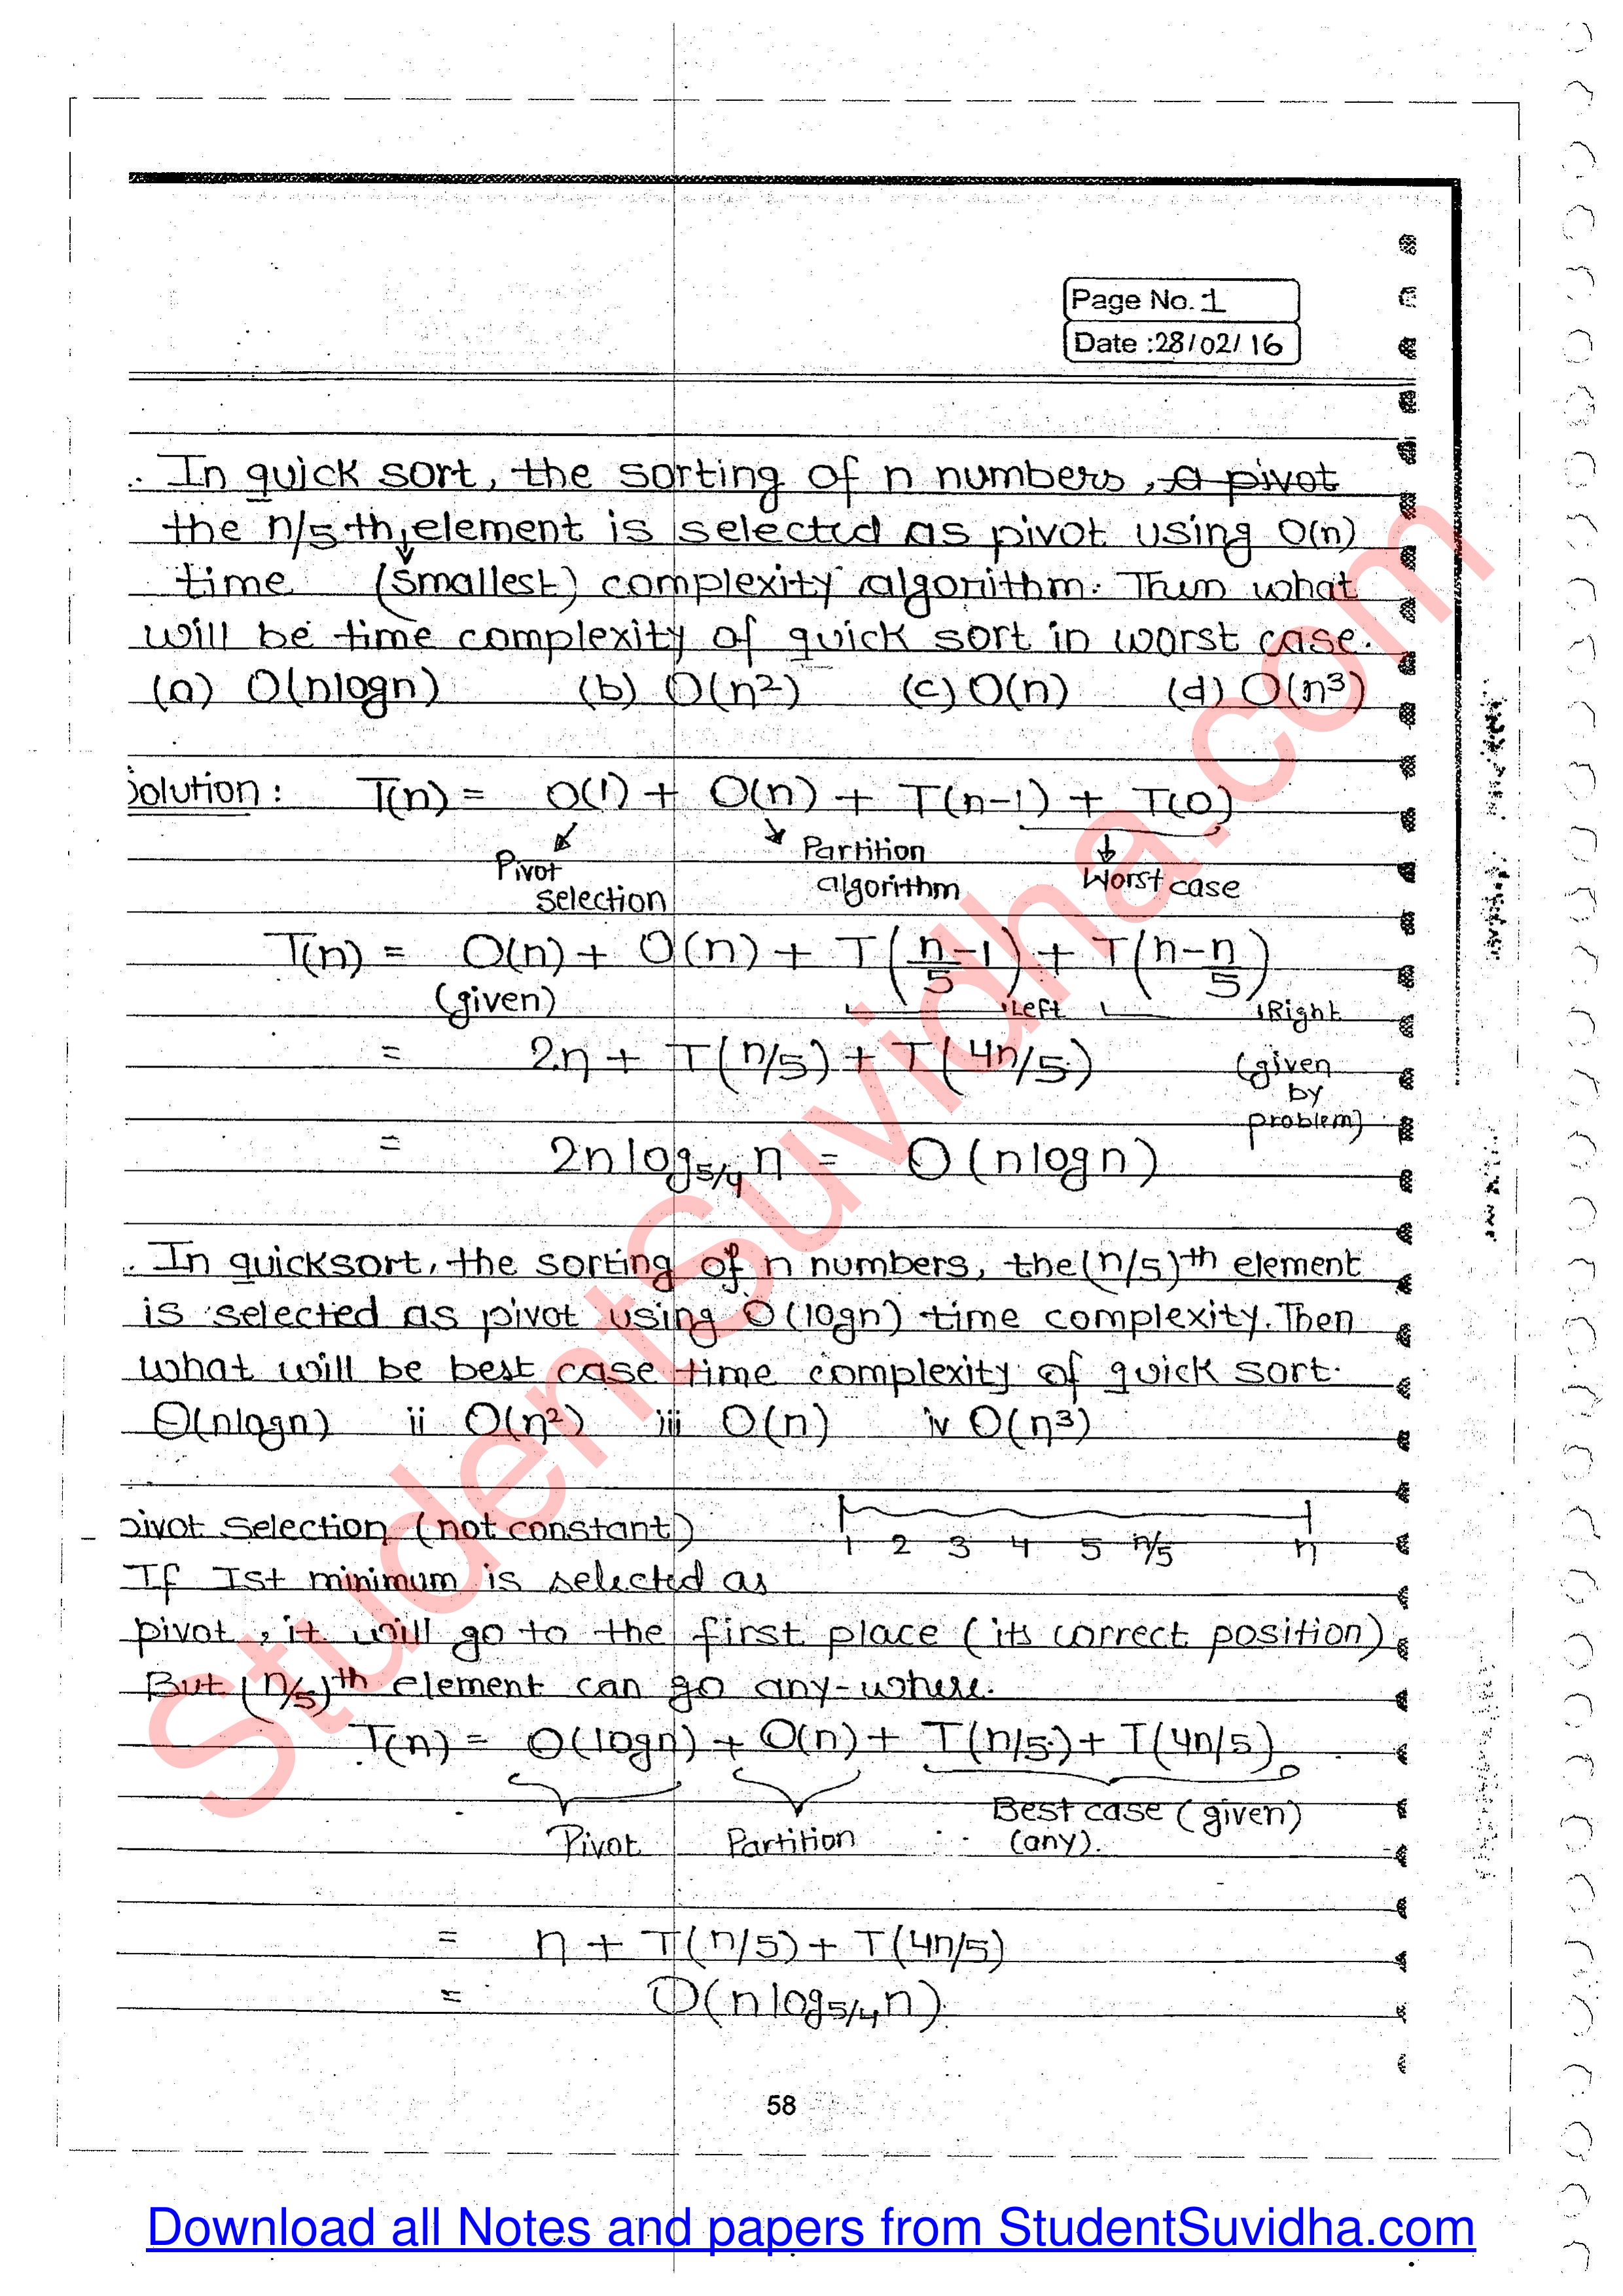 Page No. 1
Date : 28/02/16
In quick sort, the sorting of n numbers, a pivot
the n/5 th element is selected as pivot using O(n)
time (smallest) complexity algorithm. Then what
will be time complexity of quick sort in worst case.
(a) O(nlogn) (b) O(n²) (c) O(n) (d) O(n³)
Solution: T(n) = O(1) + O(n) + T(n-1) + T(0)
Pivot selection Partition algorithm Worst case
T(n) = O(n) + O(n) + T(n/5 -1) + T(n-n/5)
(given) Left Right
= 2n + T(n/5) + T(4n/5) (given by problem)
= 2nlog5/4 n = O(nlogn)
In quicksort, the sorting of n numbers, the (n/5)th element
is selected as pivot using O(logn) time complexity. Then
what will be best case time complexity of quick sort.
O(nlogn) ii O(n²) iii O(n) iv O(n³)
pivot selection (not constant) 1 2 3 4 5 n/5 n
If Ist minimum is selected as
pivot, it will go to the first place (its correct position)
But (n/5)th element can go any-where.
T(n) = O(logn) + O(n) + T(n/5) + T(4n/5)
Pivot Partition Best case (given)
(any).
= n + T(n/5) + T(4n/5)
= O(nlog5/4 n)
58
StudentSuvidha.com
Download all Notes and papers from StudentSuvidha.com